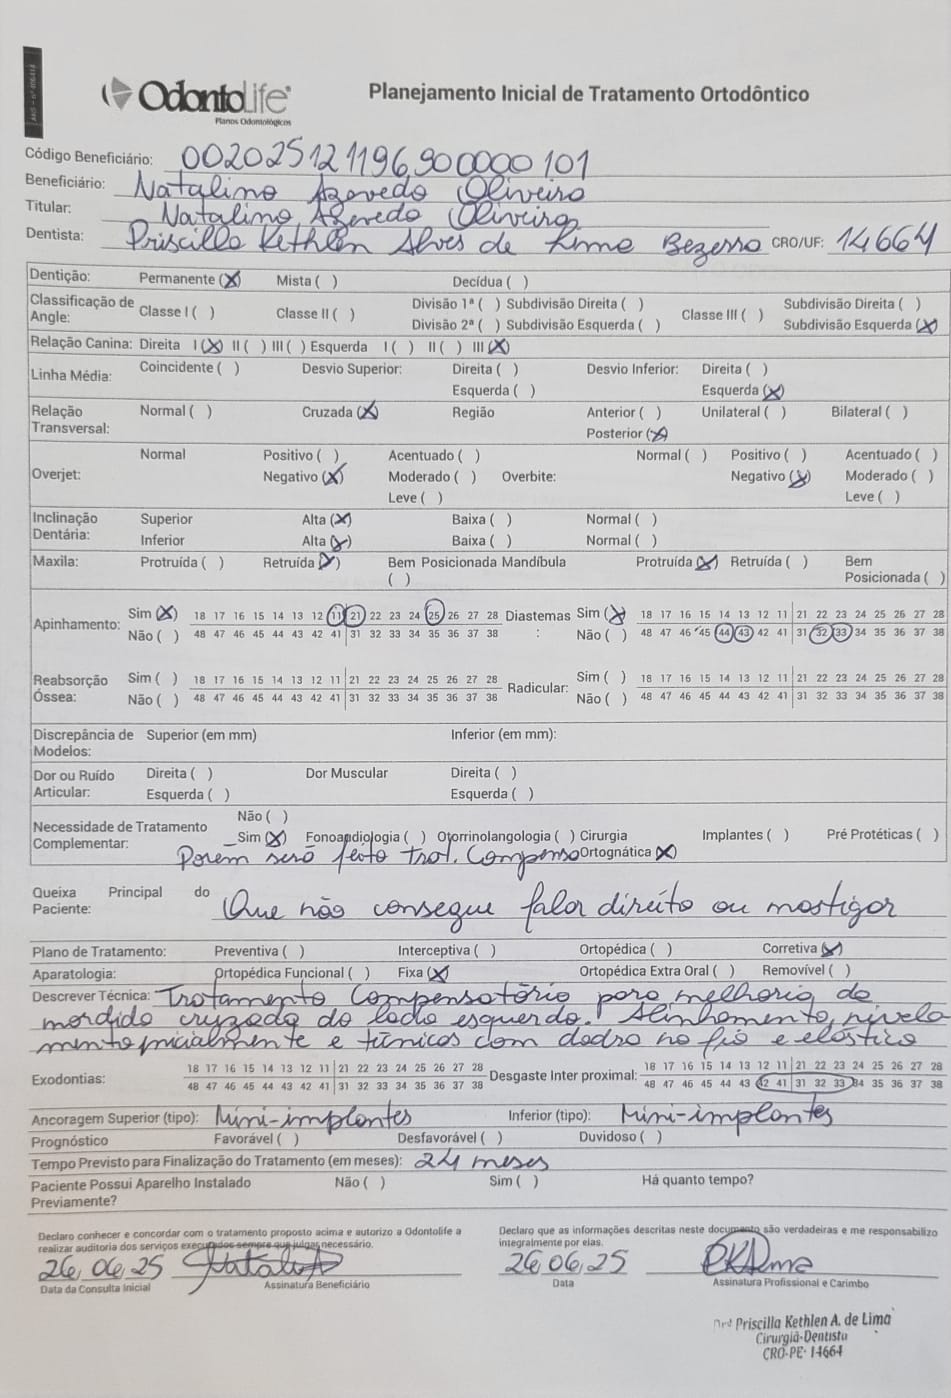 OdontoLife
Planos Odontológicos
Planejamento Inicial de Tratamento Ortodôntico
Código Beneficiário: 00202512119690000101
Beneficiário: Natalino Azevedo Oliveira
Titular: Natalino Azevedo Oliveira
Dentista: Priscilla Kethlen Alves de Lima Bezerra CRO/UF: 14664
Dentição: Permanente (X) Mista ( ) Decídua ( )
Classificação de Angle: Classe I ( ) Classe II ( ) Divisão 1ª ( ) Subdivisão Direita ( ) Classe III ( ) Subdivisão Direita ( )
Divisão 2ª ( ) Subdivisão Esquerda ( ) Subdivisão Esquerda (X)
Relação Canina: Direita I (X) II ( ) III ( ) Esquerda I ( ) II ( ) III (X)
Linha Média: Coincidente ( ) Desvio Superior: Direita ( ) Desvio Inferior: Direita ( )
Esquerda ( ) Esquerda (X)
Relação Transversal: Normal ( ) Cruzada (X) Região Anterior ( ) Unilateral ( ) Bilateral ( )
Posterior (X)
Normal Positivo ( ) Acentuado ( ) Normal ( ) Positivo ( ) Acentuado ( )
Overjet: Negativo (X) Moderado ( ) Overbite: Negativo (X) Moderado ( )
Leve ( ) Leve ( )
Inclinação Dentária: Superior Alta (X) Baixa ( ) Normal ( )
Inferior Alta (X) Baixa ( ) Normal ( )
Maxila: Protruída ( ) Retruída (X) Bem Posicionada ( ) Mandíbula Protruída (X) Retruída ( ) Bem Posicionada ( )
Apinhamento: Sim (X) 18 17 16 15 14 13 12 11 21 22 23 24 25 26 27 28 Diastemas: Sim (X) 18 17 16 15 14 13 12 11 21 22 23 24 25 26 27 28
Não ( ) 48 47 46 45 44 43 42 41 31 32 33 34 35 36 37 38 Não ( ) 48 47 46 45 44 43 42 41 31 32 33 34 35 36 37 38
Reabsorção Óssea: Sim ( ) 18 17 16 15 14 13 12 11 21 22 23 24 25 26 27 28 Radicular: Sim ( ) 18 17 16 15 14 13 12 11 21 22 23 24 25 26 27 28
Não ( ) 48 47 46 45 44 43 42 41 31 32 33 34 35 36 37 38 Não ( ) 48 47 46 45 44 43 42 41 31 32 33 34 35 36 37 38
Discrepância de Modelos: Superior (em mm) Inferior (em mm):
Dor ou Ruído Articular: Direita ( ) Dor Muscular Direita ( )
Esquerda ( ) Esquerda ( )
Necessidade de Tratamento Complementar: Não ( )
Sim (X) Fonoandiologia ( ) Otorrinolangologia ( ) Cirurgia Ortognática (X) Implantes ( ) Pré Protéticas ( )
Porem será feito trat. Compensa
Queixa Principal do Paciente: Que não consegue falar direito ou mastigar
Plano de Tratamento: Preventiva ( ) Interceptiva ( ) Ortopédica ( ) Corretiva (X)
Aparatologia: Ortopédica Funcional ( ) Fixa (X) Ortopédica Extra Oral ( ) Removível ( )
Descrever Técnica: Tratamento Compensatório para melhoria da
mordida cruzada do lado esquerdo. Alinhamento, nivela
mento inicialmente e técnicas com dobra no fio e elástico
Exodontias: 18 17 16 15 14 13 12 11 21 22 23 24 25 26 27 28 Desgaste Inter proximal: 18 17 16 15 14 13 12 11 21 22 23 24 25 26 27 28
48 47 46 45 44 43 42 41 31 32 33 34 35 36 37 38 48 47 46 45 44 43 42 41 31 32 33 34 35 36 37 38
Ancoragem Superior (tipo): Mini-implantes Inferior (tipo): Mini-implantes
Prognóstico Favorável ( ) Desfavorável ( ) Duvidoso ( )
Tempo Previsto para Finalização do Tratamento (em meses): 24 meses
Paciente Possui Aparelho Instalado Previamente? Não ( ) Sim ( ) Há quanto tempo?
Declaro conhecer e concordar com o tratamento proposto acima e autorizo a Odontolife a
realizar auditoria dos serviços executados sempre que julgar necessário.
Declaro que as informações descritas neste documento são verdadeiras e me responsabilizo
integralmente por elas.
26,06,25 26,06,25
Data da Consulta Inicial Assinatura Beneficiário Data Assinatura Profissional e Carimbo
Priscilla Kethlen A. de Lima
Cirurgiã-Dentista
CRO-PE: 14664